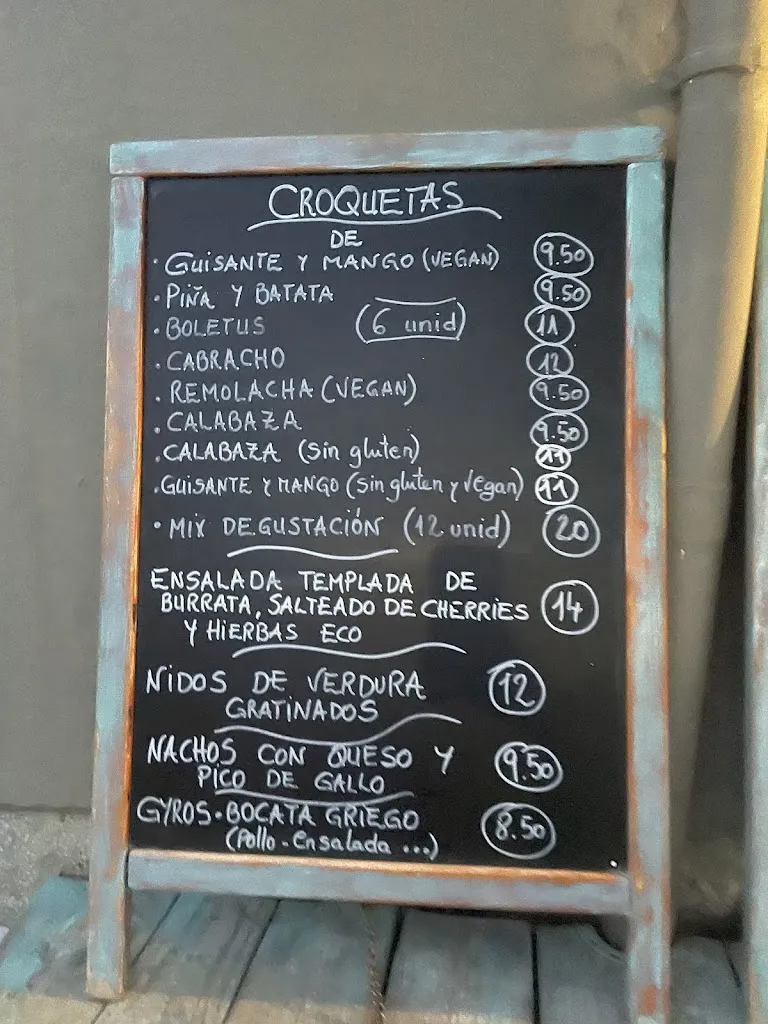 CROQUETAS
DE
· GUISANTE Y MANGO (VEGAN) 9.50
· PIÑA Y BATATA 9.50
· BOLETUS (6 unid) 11
· CABRACHO 12
· REMOLACHA (VEGAN) 9.50
· CALABAZA 9.50
· CALABAZA (sin gluten) 11
· GUISANTE Y MANGO (sin gluten y vegan) 11
· MIX DEGUSTACIÓN (12 unid) 20
ENSALADA TEMPLADA DE
BURRATA, SALTEADO DE CHERRIES 14
Y HIERBAS ECO
NIDOS DE VERDURA 12
GRATINADOS
NACHOS CON QUESO Y 9.50
PICO DE GALLO
GYROS · BOCATA GRIEGO 8.50
(Pollo - Ensalada ...)